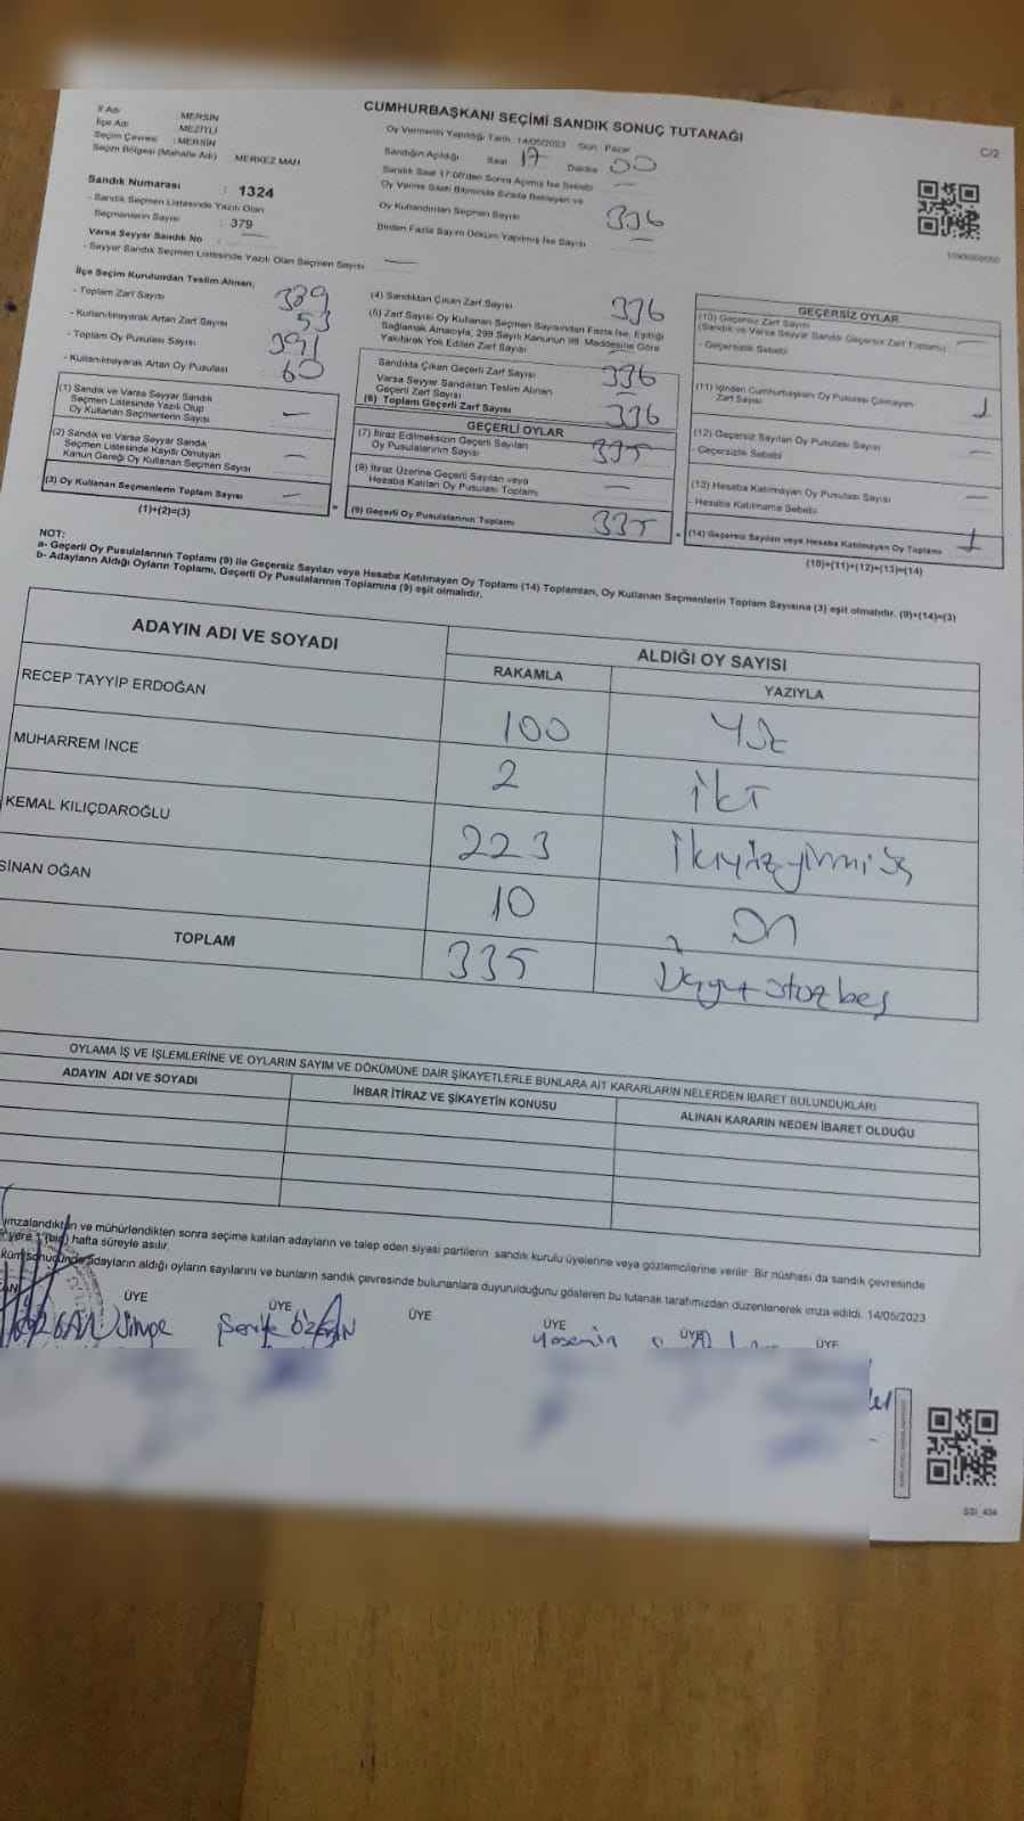 CUMHURBAŞKANI SEÇİMİ SANDIK SONUÇ TUTANAĞI
C/2
İl Adı : MERSİN
İlçe Adı : MEZİTLİ
Seçim Çevresi : MERSİN
Seçim Bölgesi (Mahalle Adı) MERKEZ MAH
Sandık Numarası : 1324
- Sandık Seçmen Listesinde Yazılı Olan
Seçmenlerin Sayısı : 379
Varsa Seyyar Sandık No
- Seyyar Sandık Seçmen Listesinde Yazılı Olan Seçmen Sayısı —
Oy Vermenin Yapıldığı Tarih 14/05/2023 Gün Pazar
Sandığın Açıldığı Saat 17 Dakika 00
Sandık Saat 17:00'den Sonra Açılmış İse Sebebi —
Oy Verme Saati Bitiminde Sırada Bekleyen ve
Oy Kullandırılan Seçmen Sayısı 336
Birden Fazla Sayım Döküm Yapılmış İse Sayısı —
İlçe Seçim Kurulundan Teslim Alınan;
- Toplam Zarf Sayısı 389
- Kullanılmayarak Artan Zarf Sayısı 53
- Toplam Oy Pusulası Sayısı 391
- Kullanılmayarak Artan Oy Pusulası 60
(1) Sandık ve Varsa Seyyar Sandık
Seçmen Listesinde Yazılı Olup
Oy Kullanan Seçmenlerin Sayısı —
(2) Sandık ve Varsa Seyyar Sandık
Seçmen Listesinde Kaydı Olmayan
Kanun Gereği Oy Kullanan Seçmen Sayısı —
(3) Oy Kullanan Seçmenlerin Toplam Sayısı —
(1)+(2)=(3)
(4) Sandıktan Çıkan Zarf Sayısı 336
(5) Zarf Sayısı Oy Kullanan Seçmen Sayısından Fazla İse, Eşitliği
Sağlamak Amacıyla, 298 Sayılı Kanunun 98. Maddesine Göre
Yakılarak Yok Edilen Zarf Sayısı
Sandıkta Çıkan Geçerli Zarf Sayısı 336
Varsa Seyyar Sandıktan Teslim Alınan
Geçerli Zarf Sayısı —
(6) Toplam Geçerli Zarf Sayısı 336
GEÇERLİ OYLAR
(7) İtiraz Edilmeksizin Geçerli Sayılan
Oy Pusulalarının Sayısı 335
(8) İtiraz Üzerine Geçerli Sayılan veya
Hesaba Katılan Oy Pusulası Toplamı —
(9) Geçerli Oy Pusulalarının Toplamı 335
GEÇERSİZ OYLAR
(10) Geçersiz Zarf Sayısı
(Sandık ve Varsa Seyyar Sandık Geçersiz Zarf Toplamı) —
- Geçersizlik Sebebi
(11) İçinden Cumhurbaşkanı Oy Pusulası Çıkmayan
Zarf Sayısı 1
(12) Geçersiz Sayılan Oy Pusulası Sayısı —
- Geçersizlik Sebebi
(13) Hesaba Katılmayan Oy Pusulası Sayısı —
- Hesaba Katılmama Sebebi
(14) Geçersiz Sayılan veya Hesaba Katılmayan Oy Toplamı 1
(10)+(11)+(12)+(13)=(14)
NOT:
a- Geçerli Oy Pusulalarının Toplamı (9) ile Geçersiz Sayılan veya Hesaba Katılmayan Oy Toplamı (14) Toplamları, Oy Kullanan Seçmenlerin Toplam Sayısına (3) eşit olmalıdır. (9)+(14)=(3)
b- Adayların Aldığı Oyların Toplamı, Geçerli Oy Pusulalarının Toplamına (9) eşit olmalıdır.
ADAYIN ADI VE SOYADI ALDIĞI OY SAYISI
RAKAMLA YAZIYLA
RECEP TAYYİP ERDOĞAN 100 Yüz
MUHARREM İNCE 2 İki
KEMAL KILIÇDAROĞLU 223 İkiyüzyirmiüç
SİNAN OĞAN 10 On
TOPLAM 335 Üçyüzotuzbeş
OYLAMA İŞ VE İŞLEMLERİNE VE OYLARIN SAYIM VE DÖKÜMÜNE DAİR ŞİKAYETLERLE BUNLARA AİT KARARLARIN NELERDEN İBARET BULUNDUKLARI
ADAYIN ADI VE SOYADI İHBAR İTİRAZ VE ŞİKAYETİN KONUSU ALINAN KARARIN NEDEN İBARET OLDUĞU
imzalandıktan ve mühürlendikten sonra seçime katılan adayların ve talep eden siyasi partilerin sandık kurulu üyelerine veya gözlemcilerine verilir. Bir nüshası da sandık çevresinde
yere 1 (bir) hafta süreyle asılır.
adayların aldığı oyların sayılarını ve bunların sandık çevresinde bulunanlara duyurulduğunu gösteren bu tutanak tarafımızdan düzenlenerek imza edildi. 14/05/2023
ÜYE ÜYE ÜYE ÜYE ÜYE ÜYE
Yasemin